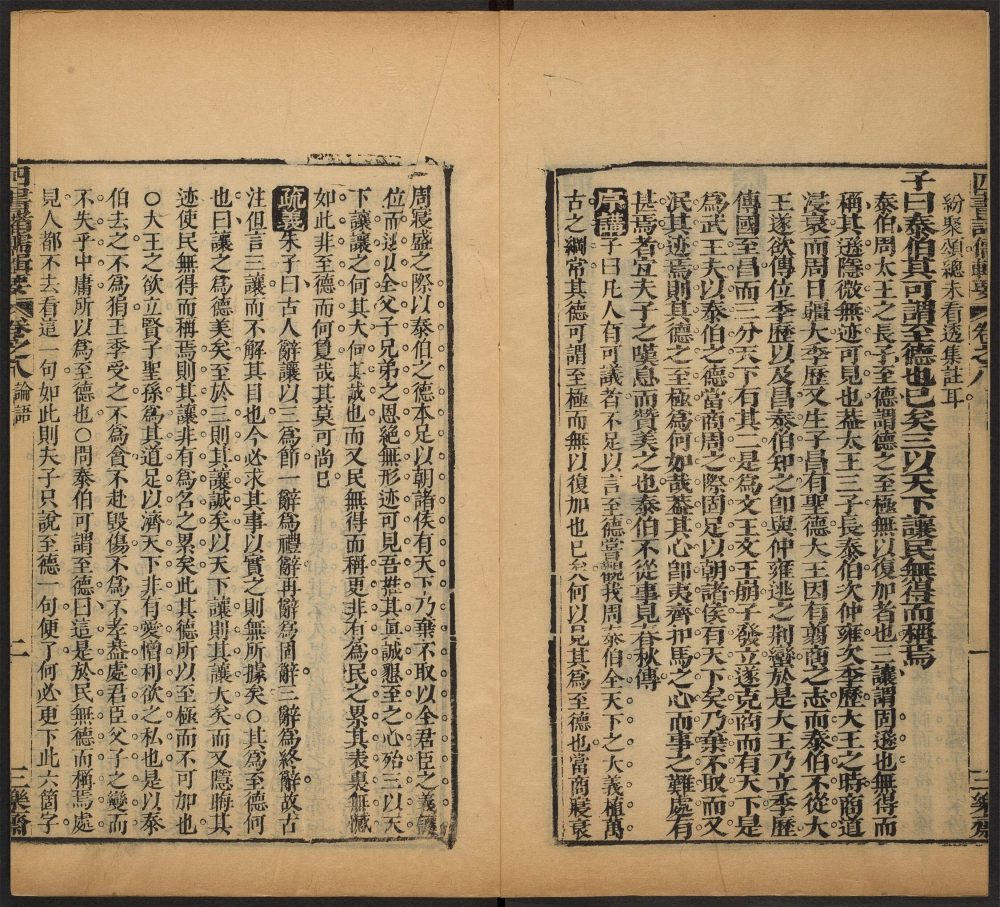 四書諸儒輯要 卷之八
紛聚頌總未看透集註耳
子曰泰伯其可謂至德也已矣三以天下讓民無得而稱焉
泰伯周大王之長子至德謂德之至極無以復加者也三讓謂固遜也無得而
稱其遜隱微無迹可見也蓋大王三子長泰伯次仲雍次季歷大王之時商道
寖衰而周日彊大季歷又生子昌有聖德大王因有翦商之志而泰伯不從大
王遂欲傳位季歷以及昌泰伯知之卽與仲雍逃之荆蠻於是大王乃立季歷
傳國至昌而三分天下有其二是爲文王文王崩子發立遂克商而有天下是
爲武王夫以泰伯之德當商周之際固足以朝諸侯有天下矣乃棄不取而又
泯其迹焉則其德之至極爲何如哉蓋其心卽夷齊扣馬之心而事之難處有
甚焉者宜夫子之嘆息而贊美之也泰伯不從事見春秋傳
序講子曰凡人有可議者不足以言至德嘗觀我周泰伯全天下之大義植萬
古之綱常其德可謂至極而無以復加也已矣何以見其爲至德也當商寖衰
一
三樂齋
周寖盛之際以泰伯之德本足以朝諸侯有天下乃棄不取以全君臣之義
位而逃以全父子兄弟之恩絶無形迹可見吾推其眞誠懇至之心殆三以天
下讓讓之何其大何其誠也而又民無得而稱更非有爲民之累其表裏無憾
如此非至德而何夐哉其莫可尚已
疏義朱子曰古人辭讓以三爲節一辭爲禮辭再辭爲固辭三辭爲終辭故古
注但言三讓而不解其目也今必求其事以實之則無所據矣○其爲至德何
也曰讓之爲德美矣至於三則其讓誠矣以天下讓則其讓大矣而又隱晦其
迹使民無得而稱焉則其讓非有爲名之累矣此其德所以至極而不可加也
○大王之欲立賢子聖孫爲其道足以濟天下非有愛憎利欲之私也是以泰
伯去之不爲狷王季受之不爲貪不赴毀傷不爲不孝蓋處君臣父子之變而
不失乎中庸所以爲至德也○問泰伯可謂至德曰這是於民無德而稱焉處
見人都不去看這一句如此則夫子只說至德一句便了何必更下此六箇字
四書諸儒輯要 卷之八 論語
二
三樂齋